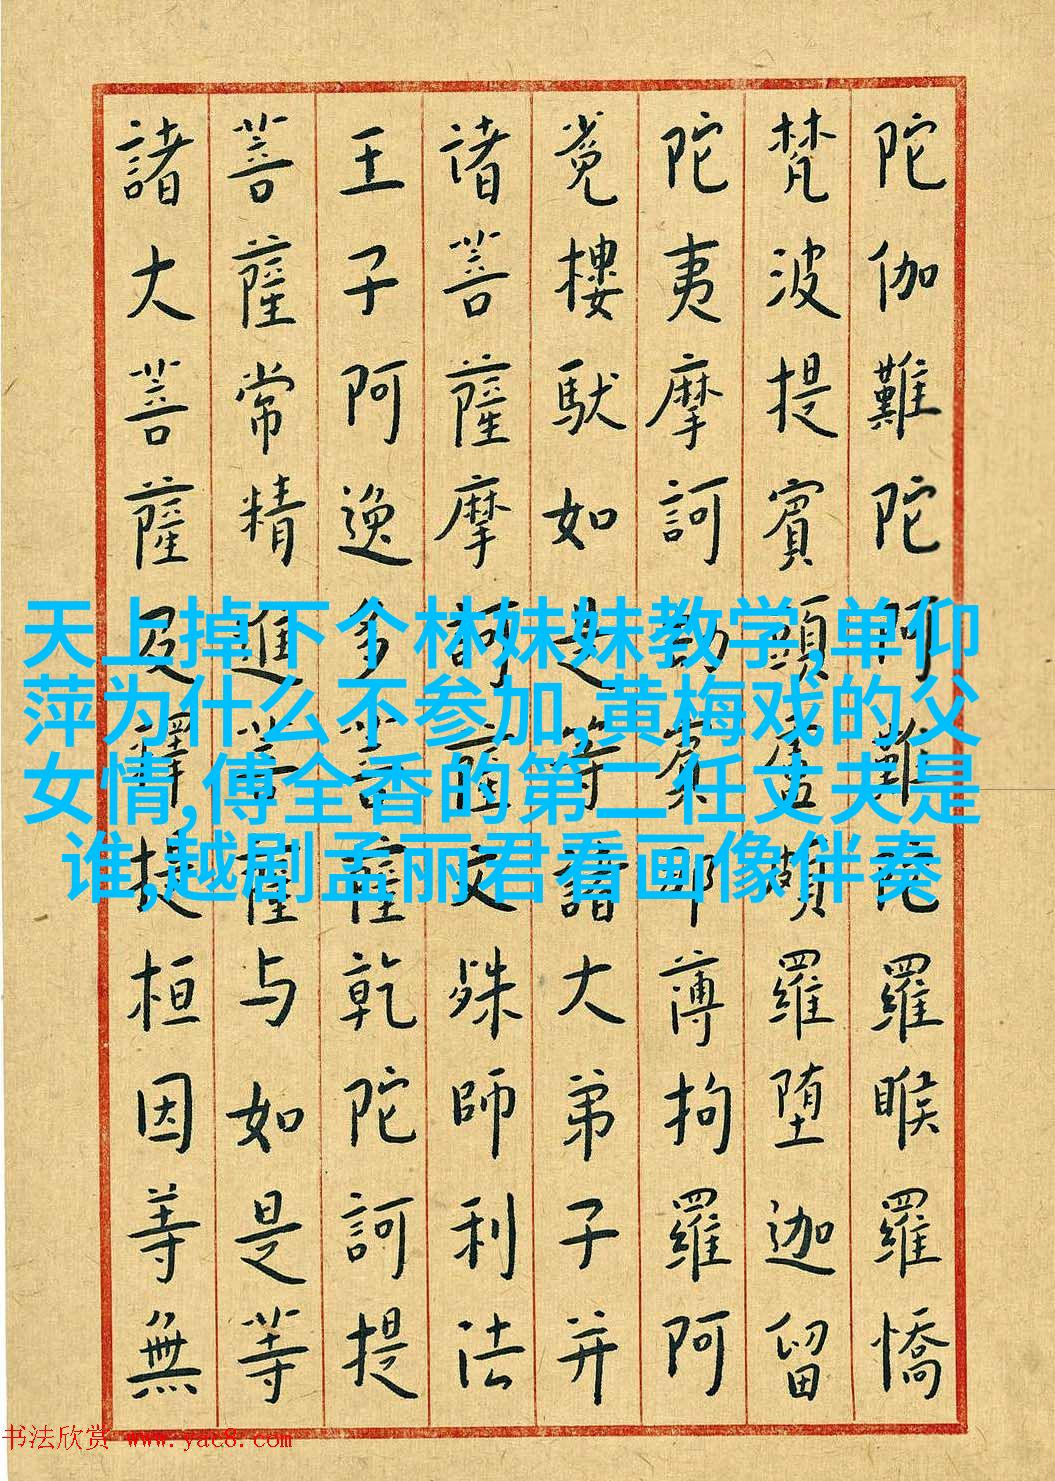 陀伽難陀阿難陀羅睺羅憍
梵波提賓頭盧頗羅堕迦留
陀夷摩訶劫賓那薄拘羅阿
㝹樓馱如是等諸大弟子并
诸菩薩摩訶薩文殊師利法
王子阿逸多菩薩乾陀訶提
菩薩常精進菩薩与如是等
諸大菩薩及釋提桓因等無
天上掉下个林妹妹教学,单仰
萍为什么不参加,黄梅戏的父
女情,傅全香的第二任丈夫是
谁,越剧孟丽君看画像伴奏
书法欣赏 www.yac8.com